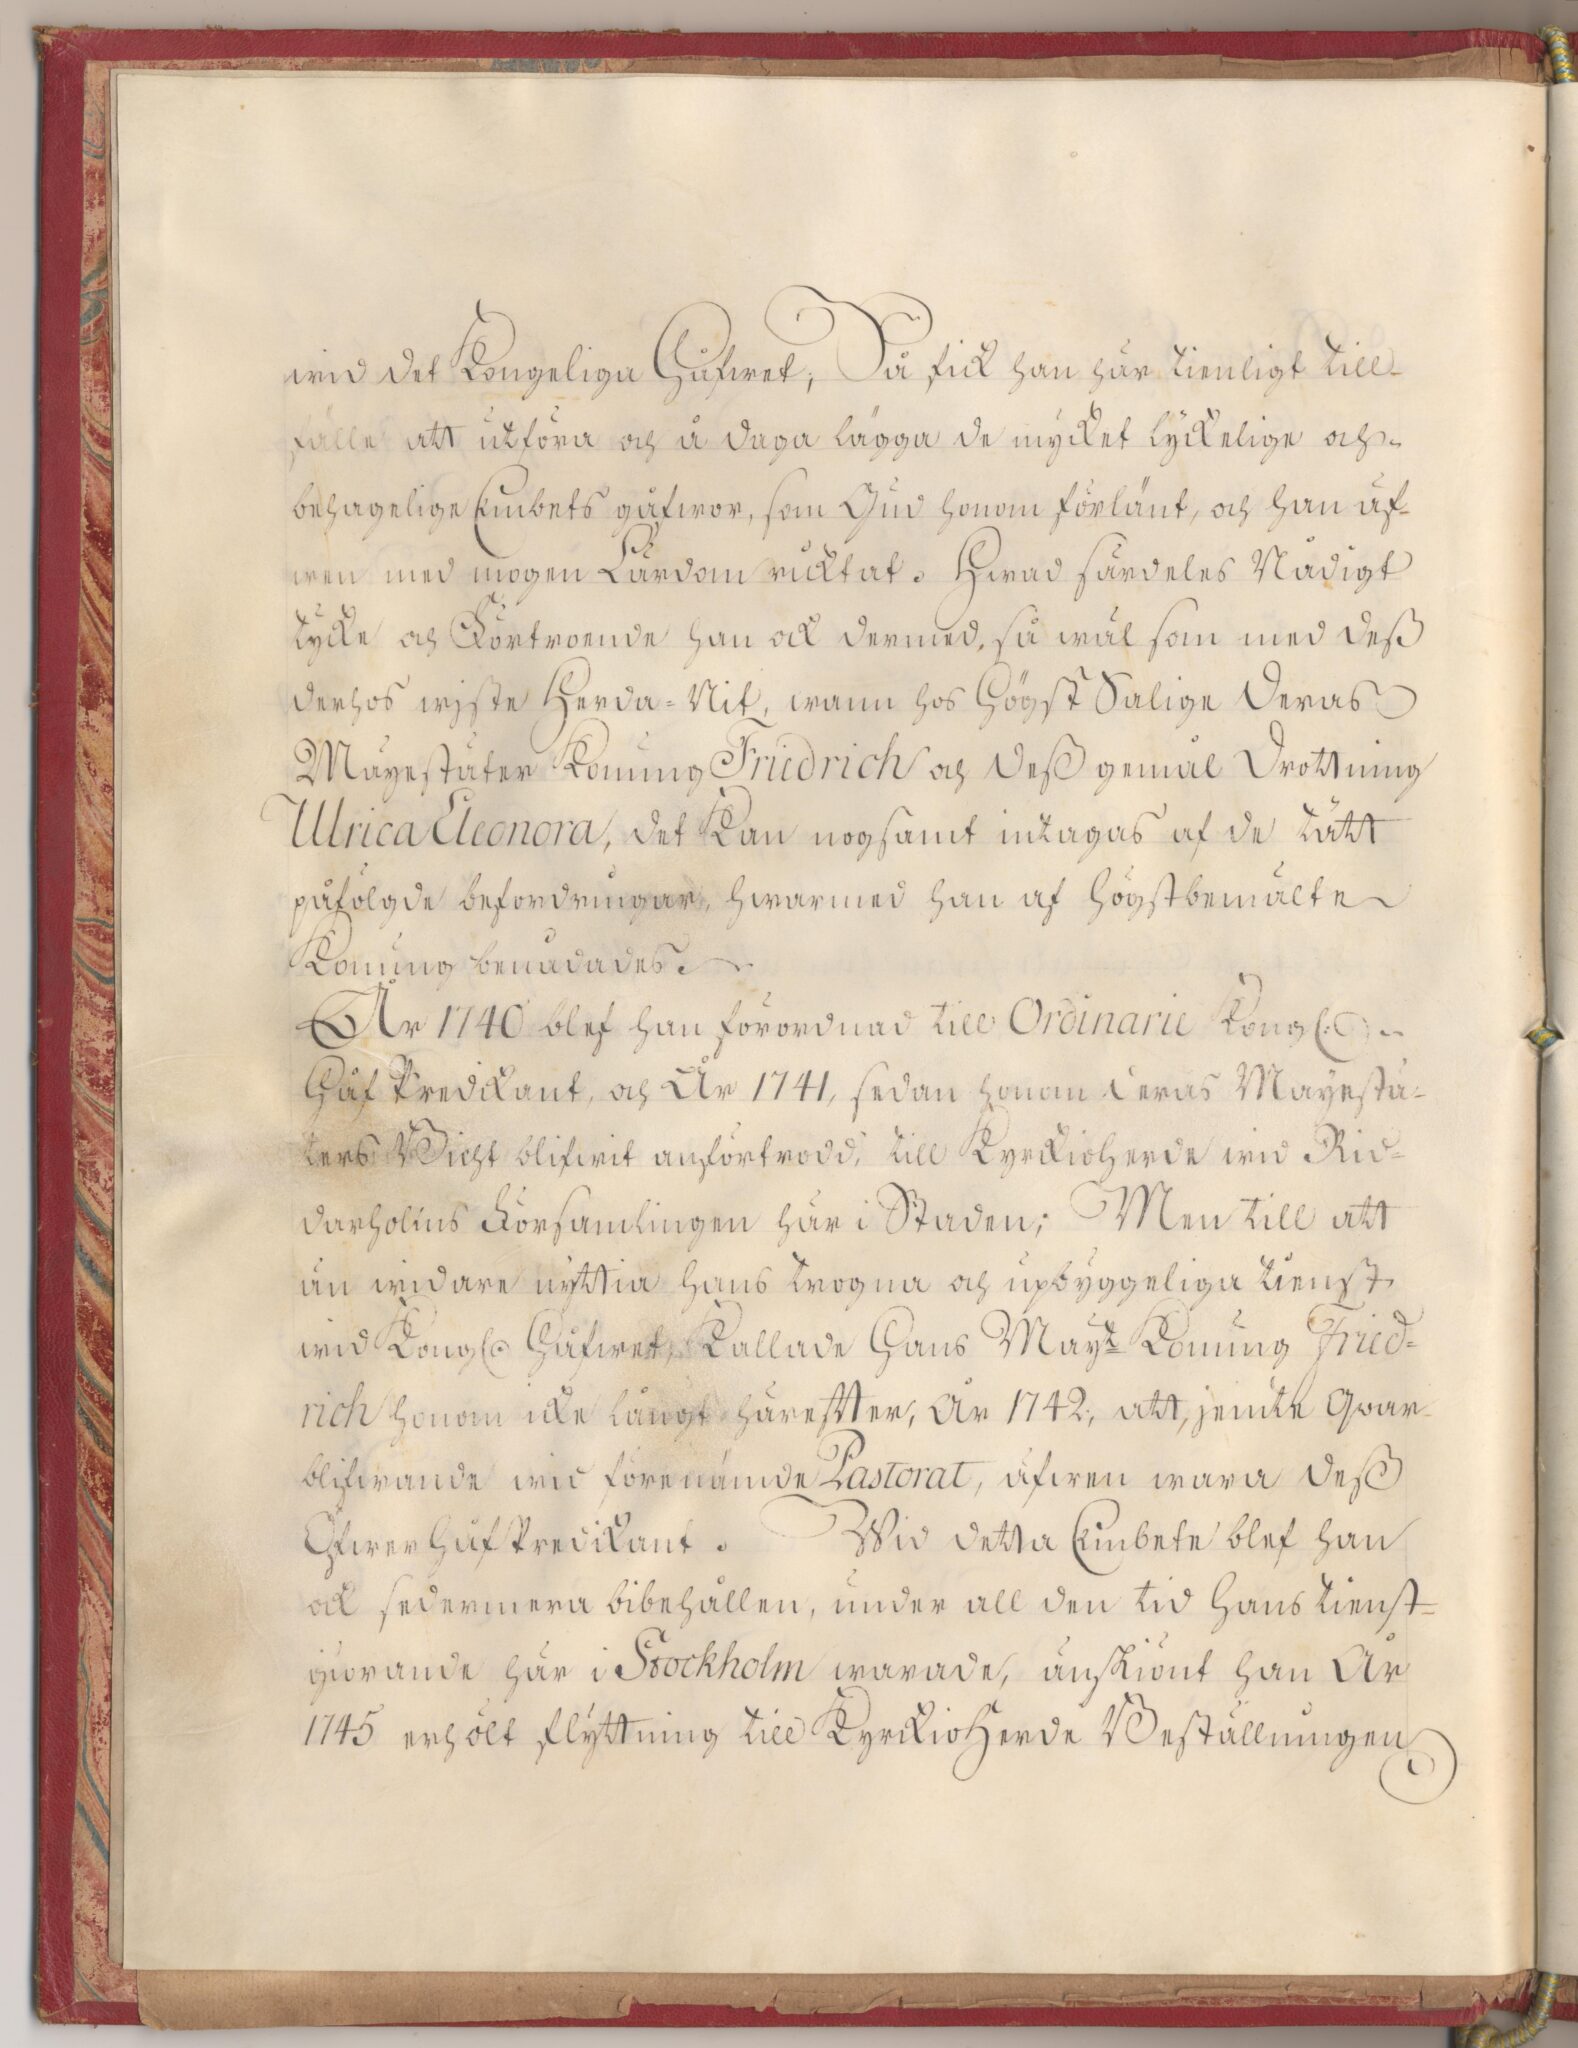 wid det Kongeliga Håfwet; Så fick han här tienligt till-
fälle att utföra och å daga lägga de mycket lyckelige och
behagelige Embets gåfwor, som Gud honom förlänt, och han äf-
wen med mogen Lärdom ricktat. Hwad särdeles Nådigt
tycke och Förtroende han ock dermed, så wäl som med deß
derhos wiste Herda-Nit, wann hos Högst Salige Deras
Mayestäter Konung Friedrich och Deß gemål Drottning
Ulrica Eleonora, det kan nogsamt intagas af de tätt
påfölgde befordringar, hwarmed han af Högstbemälte
Konung benådades.
År 1740 blef han förordnad till Ordinarie Kongl:
Håf Predikant, och År 1741, sedan honom Deras Mayestä-
ters Bicht blifwit anförtrodd, till KyrckioHerde wid Rid-
darholms Församlingen här i Staden; Men till att
än widare nyttia hans trogna och upbyggeliga tienst
wid Kongl. Håfwet, Kallade Hans Mayt Konung Fried-
rich honom icke långt härefter, År 1742, att, jemte Qwar-
blifwande wid förenämde Pastorat, äfwen wara Deß
Öfwer Håf Predikant. Wid detta Embete blef han
ock sedermera bibehållen, under all den tid Hans tienst-
giörande här i Stockholm warade, änskiönt han År
1745 erhölt flyttning till KyrckioHerde Beställningen